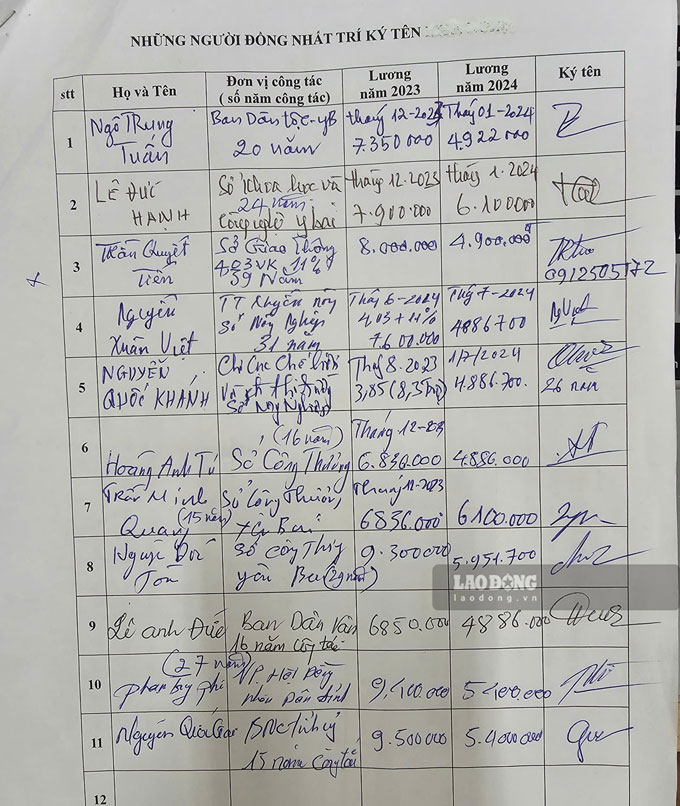 NHỮNG NGƯỜI ĐỒNG NHẤT TRÍ KÝ TÊN
stt
Họ và Tên
Đơn vị công tác
( số năm công tác)
Lương
năm 2023
Lương
năm 2024
Ký tên
1
Ngô Trung
Tuấn
Ban Dân tộc-YB
20 năm
tháng 12-2023
7.350.000
Tháng 01-2024
4.922.000
2
LÊ ĐỨC
HẠNH
Sở Khoa học và
24 năm
Công nghệ Y bái
tháng 12.2023
7.900.000
tháng 1.2024
6.100000
3
Trần Quyết
Tiến
Sở Giao thông
4,03 VK 11%
39 Năm
8.000.000
4.900.000
0912505172
4
Nguyễn
Xuân Việt
TT Khuyến nông
Sở Nông Nghiệp
31 năm
Tháng 6-2024
4,03 + 11%
7.600.000
Tháng 7-2024
4886700
5
NGUYỄN
QUỐC KHÁNH
Chi cục
Sở Nông Nghiệp
Tháng 8.2023
1/7/2024
4.886.700.
26 năm
6
Hoàng Anh Tú
(16 năm)
Sở Công Thương
Tháng 12-2023
6.836.000
4.886.000
7
Trần Minh
Quang (15 năm)
Sở Công Thương
Yên Bái
Tháng 12-2023
6836.000
6100.000
8
Sở Công Thg
Yên Bái
9.300000
5.951.700
LAO ĐỘNG
laodong.vn
9
Lê anh Đức
Ban Dân Vận
16 năm công tác
6850.000
4886.000
10
(27 năm)
VP. Hội Đồng
nhân Dân tỉnh
9,400.000
5400.000
11
BNC tỉnh ủy
15 năm công tác
9.500000
5.400000
12